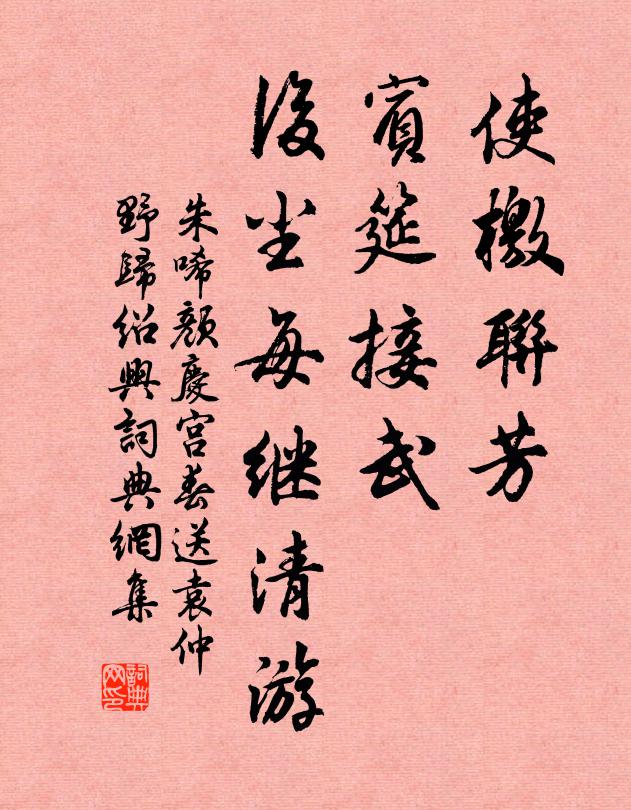 使檄聯芳
賓筵接武
後尘每继清游
朱晞颜慶宮春送袁仲
野歸绍興詞典網集
詞典
网印